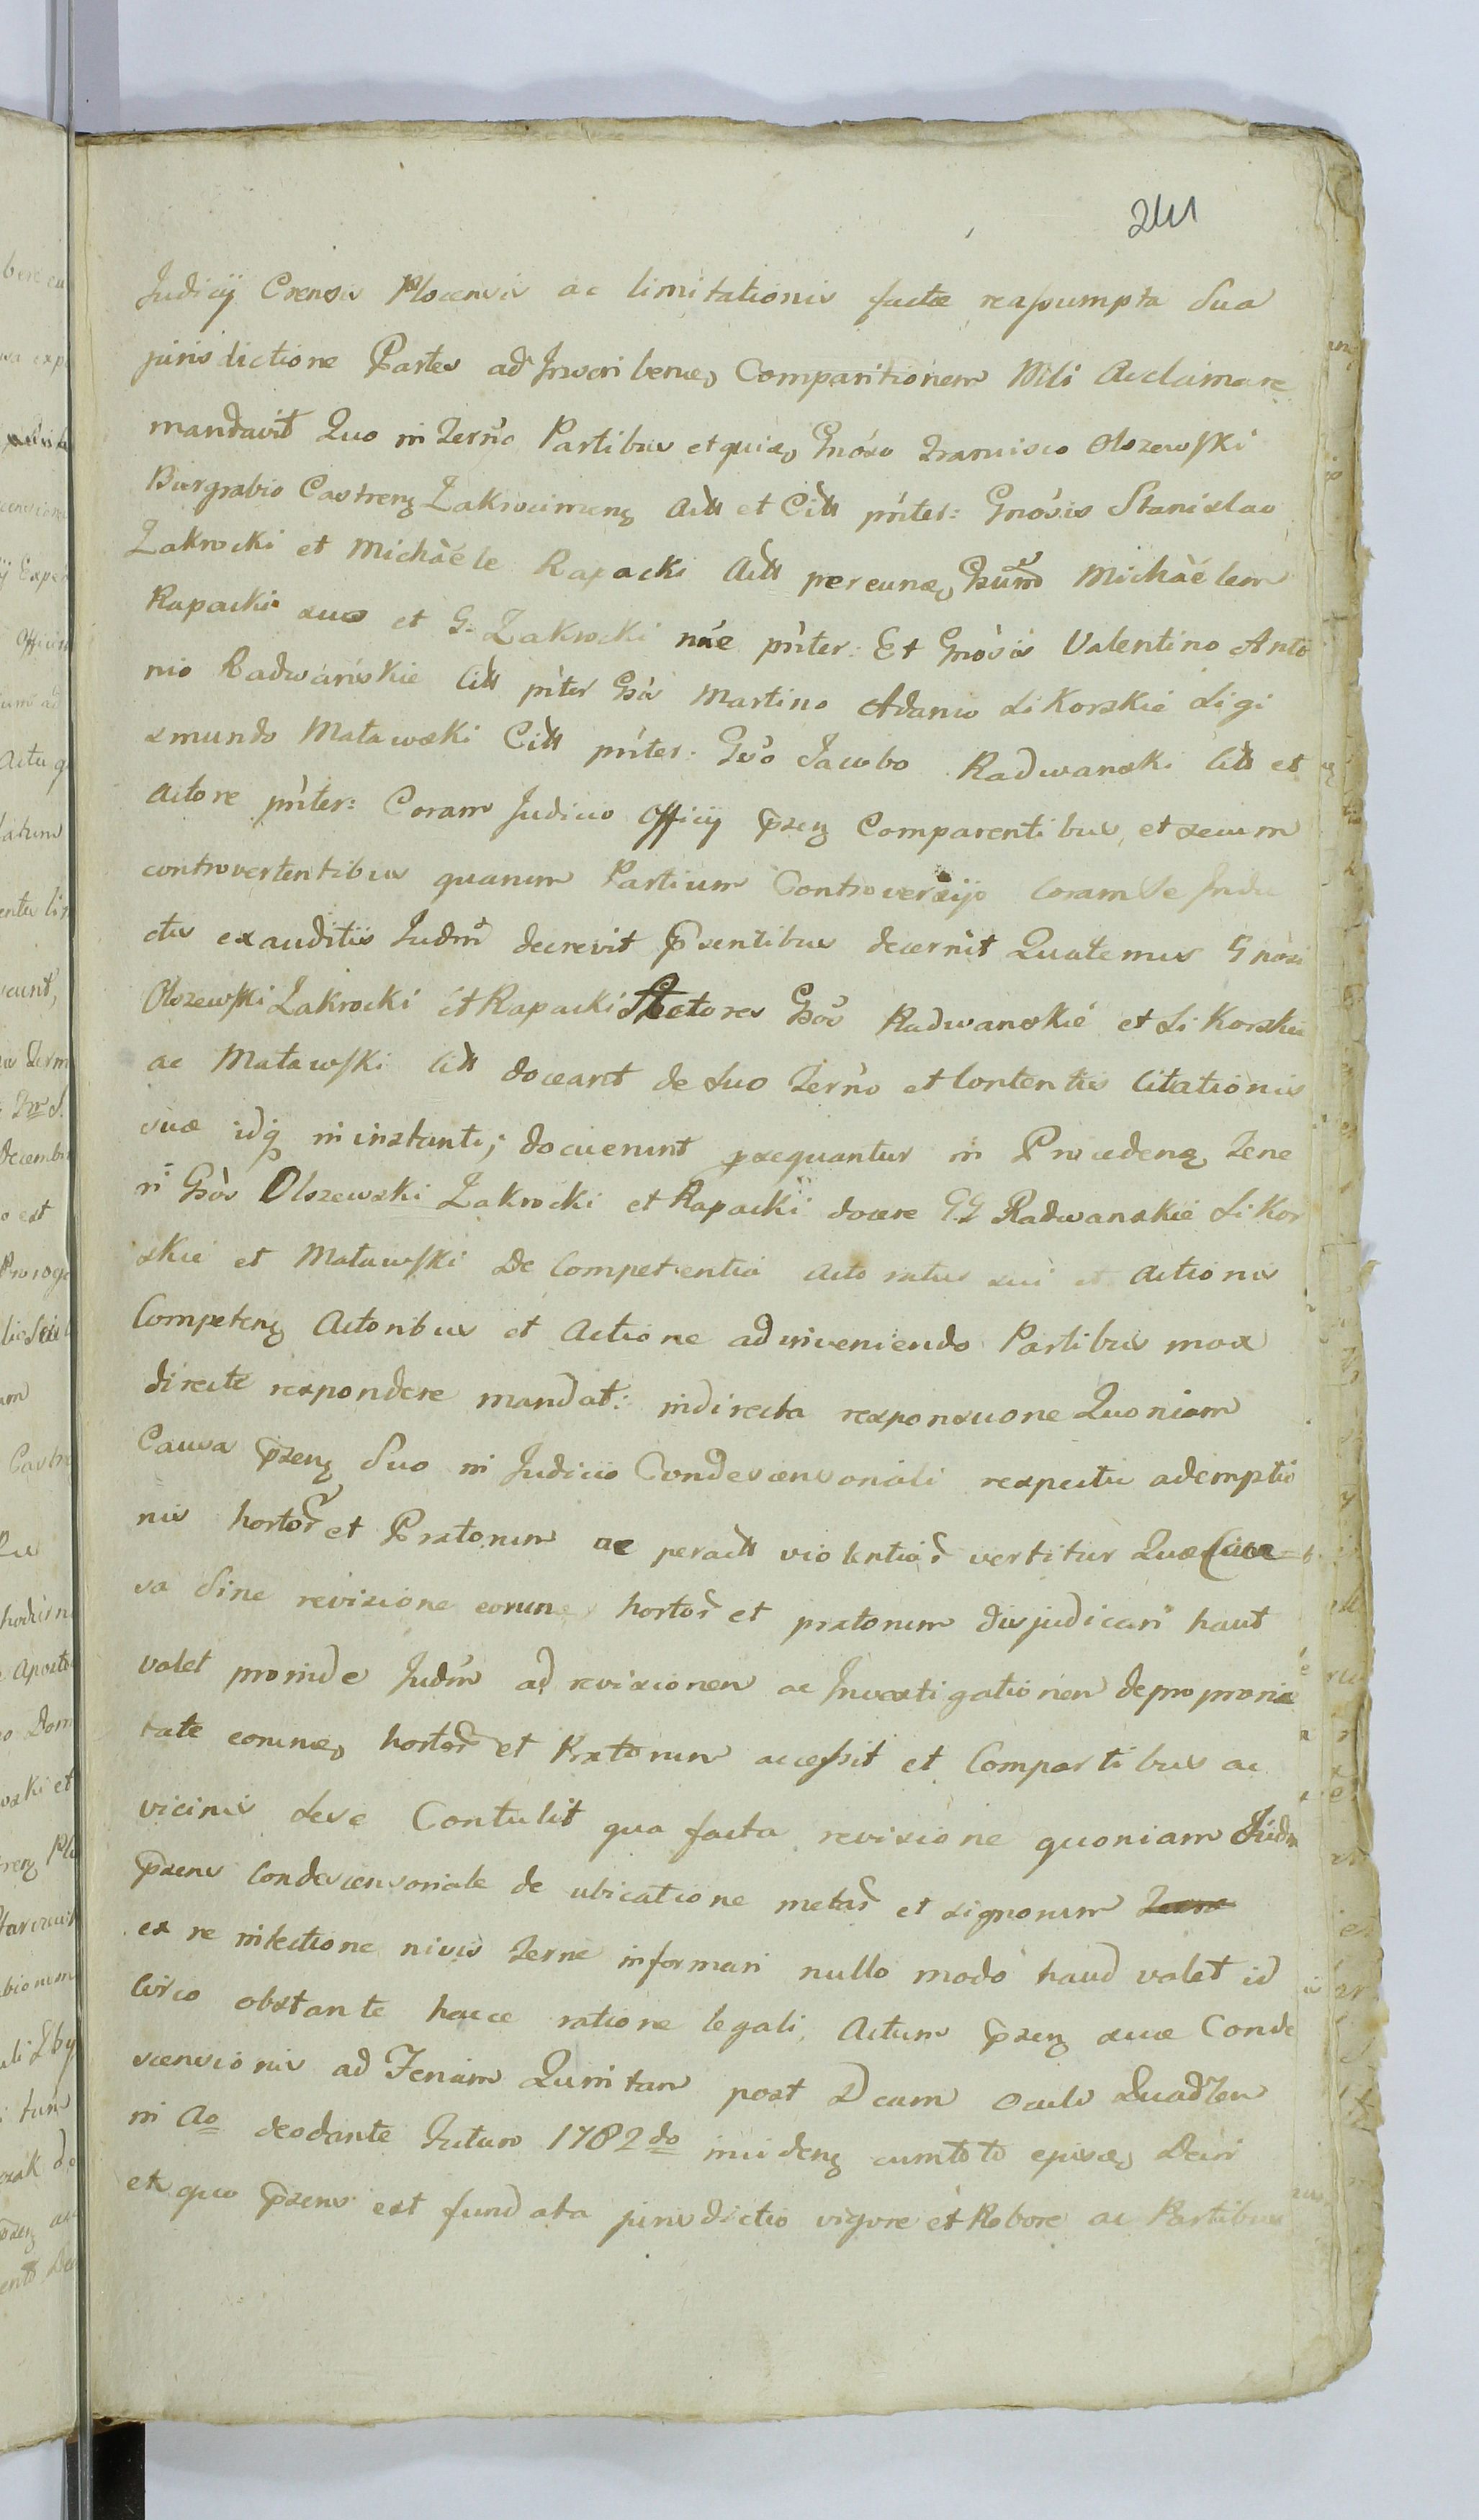 241
Judicij Crensis Plocensis ac limitationis factæ reassumpta Sua
jurisdictione Partes ad Inscribenæ Comparitionem Mli Acclamare
mandavit Quo in Terno Partibus Gnoso Francisco Olszewski
Burgrabio Castrenz Zakrocimenz Actt et Citt pnter: Gnosis Stanislao
Zakrocki et Michaéle Rapacki Actt per eunæ Gsum Michaélem
Rapacki suo et G. Zakrocki nne pnter: Et Gnosis Valentino Anto
nio Radwańskie Citt pnter Gsis Martino Adamo Sikorskie Sigi
smundo Matawski Citt pnter: Gso Jacobo Radwanski Citt et
Actore pnter: Coram Judicio Officij Pnsenz Comparentibus, et secum
controvertentibus quarum Partium Controversijs Coram Se Indu
ctis exauditis Judm decrevit Psentibus decernit Quatenus Gnosi
Olszewski Zakrocki et Rapacki Actores Gsos Radwanskie et Sikorskie
ac Matawski Citt doceant de Suo Terno et Contentis Citationis
suæ idq in instanti; docuerunt psequantur in Procedenz Tene
ri Gsos Olszewski Zakrocki et Rapacki docere GG Radwanskie Sikor
skie et Matawski De Competentia Actoratus sui et Actionis
Competenz Actoribus et Actione adinveniendo Partibus mox
directe respondere mandat: indirecta responsione Quoniam
Causa Psenz Suo in Judicio Condescensoriali respectu ademptio
nis hortor et Pratorum ac peractt violentiar vertitur Quæ Cau
sa Sine revisione eorunæ hortor et pratorum disjudicari haut
valet proinde Judm ad revisionem ac Investigationem de proprie
tate eorunæ hortor et Pratorum accessit et Compartibus ac
vicinis sese Contulit qua facta revisione quoniam Judm
Psens Condescensoriale de ubicatione metar et signorum
ex re intectione nivis Terræ informari nullo modo haud valet id
circo obstante hacce ratione legali, Actum Psenz suæ Conde
scensionis ad Feriam Quintam post Dcam Oculi Quadlem
in Ao deodante futuro 1782do incidenz cum toto episæ Decri
ex quo Psens est fundata jurisdictio vigore et Robore ac Partibus